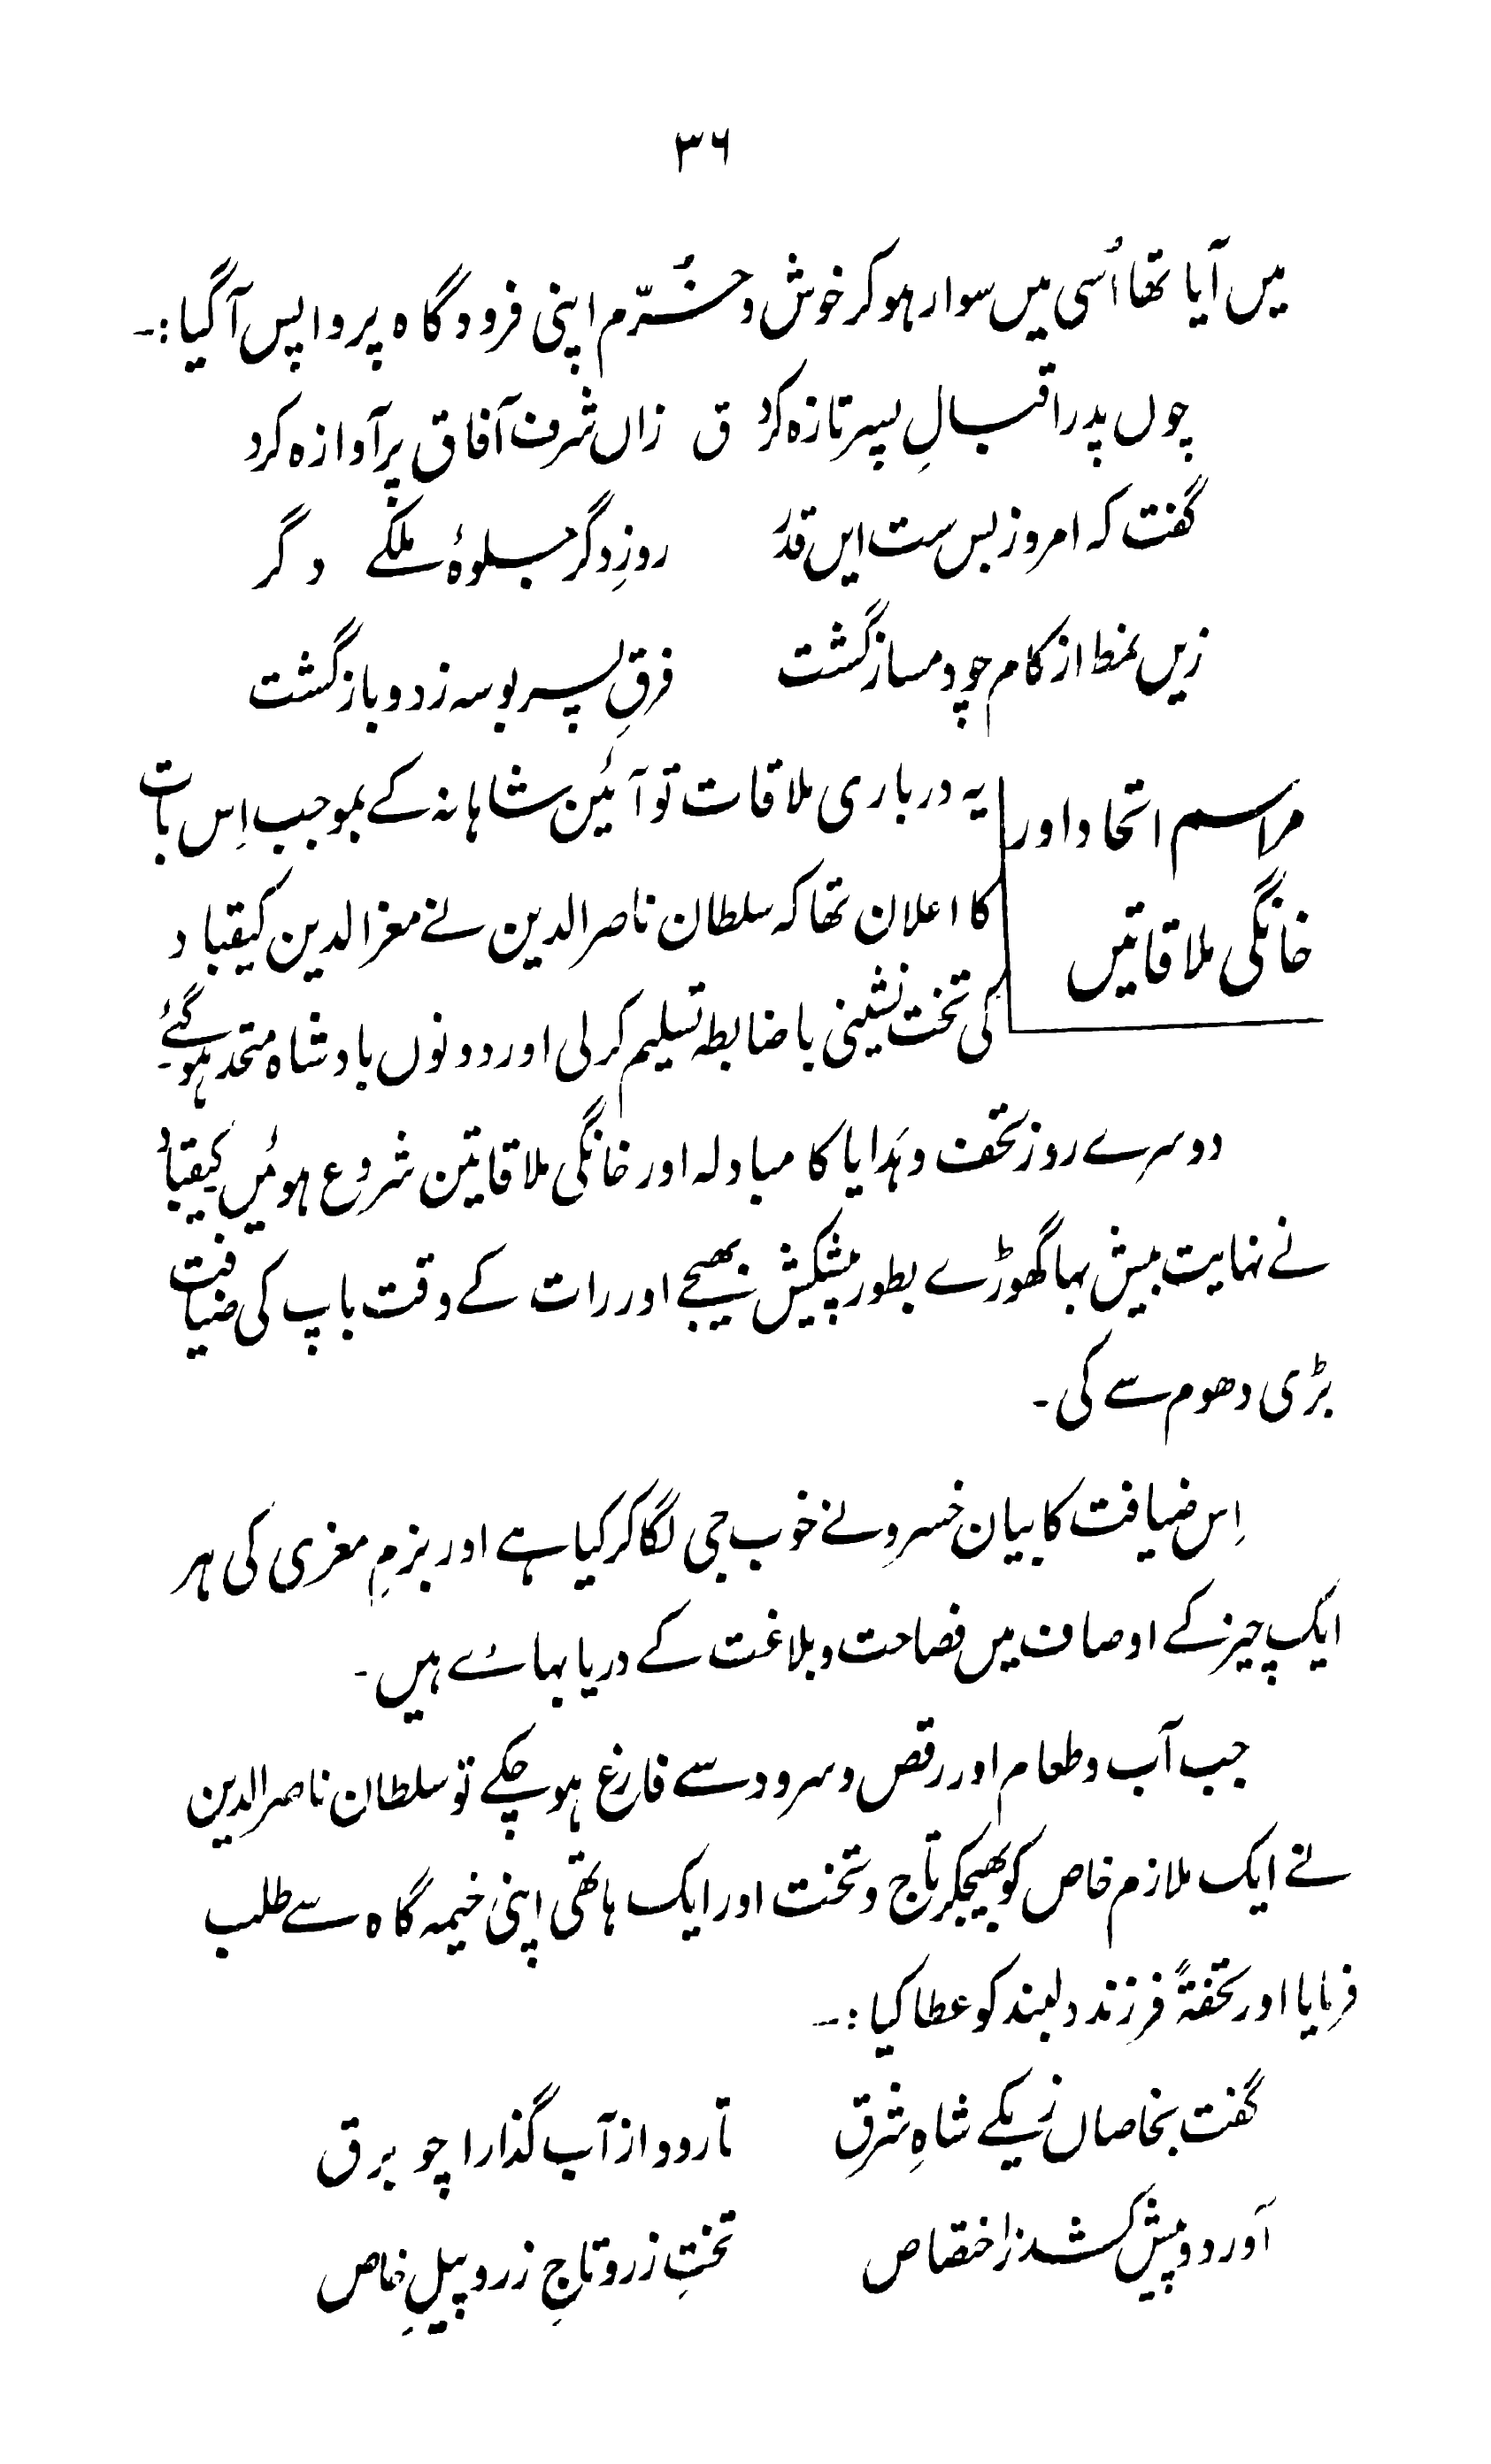 ۳۶
میں آیا تھا اُسی میں سوار ہو کر خوش و خُرّم اپنی فرودگاہ پر واپس آگیا :۔
چوں پدر اقبالِ پسر تازہ کرد ق زاں شرف آفاق پر آوازہ کرد
گفت کہ امروز بس ست ایں قدر روزِ دگر جلوۂ ملکے دگر
زیں نمط از کام چو دمساز گشت فرقِ پسر بوسہ زد و باز گشت
مراسم اتحاد اور
خانگی ملاقاتیں
یہ درباری ملاقات تو آئین شاہانہ کے بموجب اِس بات
کا اعلان تھا کہ سلطان ناصر الدین نے معز الدین کیقباد
کی تخت نشینی باضابطہ تسلیم کر لی اور دونوں بادشاہ متحد ہو گئے۔
دوسرے روز تحف و ہَدایا کا مبادلہ اور خانگی ملاقاتین شروع ہوئیں کیقباد
نے نہایت بیش بہا گھوڑے بطور پیشکیش بھیجے اور رات کے وقت باپ کی ضیافت
بڑی دھوم سے کی۔
اِس ضیافت کا بیان خسرو نے خوب جی لگا کر کیا ہے اور بزمِ معزی کی ہر
ایک چیز کے اوصاف میں فصاحت و بلاغت کے دریا بہائے ہیں۔
جب آب و طعام اور رقص و سرود سے فارغ ہو چکے تو سلطان ناصر الدین
نے ایک ملازم خاص کو بھیجکر تاج و تخت اور ایک ہاتھی اپنی خیمہ گاہ سے طلب
فرمایا اور تحفۃً فرزند دلبند کو عطا کیا :۔
گفت بخاصاں زیکے شاہِ شرق تا رود از آب گذارا چو برق
آورد و پیش کشد ز اختصاص تختِ زر و تاجِ زر و پیلِ خاص